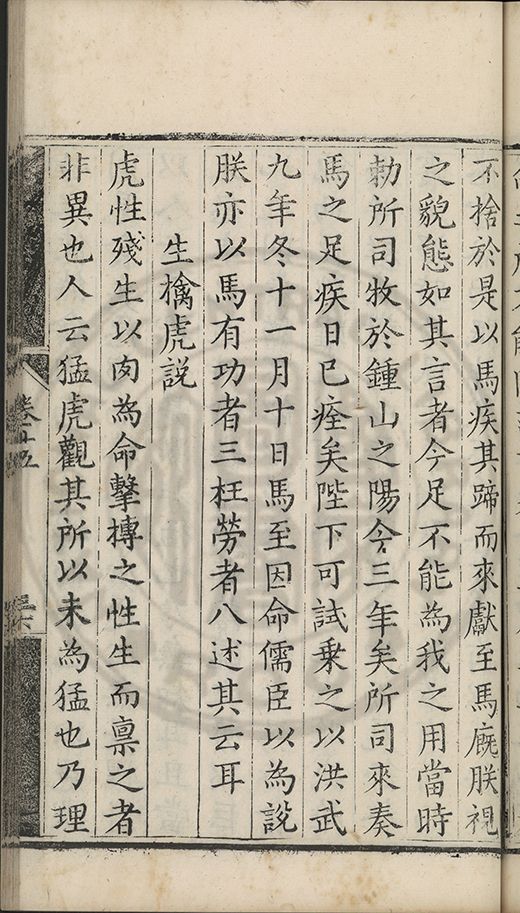 不捨於是以馬疾其蹄而來獻至馬廐朕視
之貌態如其言者今足不能為我之用當時
勅所司牧於鍾山之陽今三年矣所司來奏
馬之足疾日已痊矣陛下可試乗之以洪武
九年冬十一月十日馬至因命儒臣以為説
朕亦以馬有功者三枉勞者八述其云耳
生擒虎説
虎性殘生以肉為命擊搏之性生而禀之者
非異也人云猛虎觀其所以未為猛也乃理
卷十五